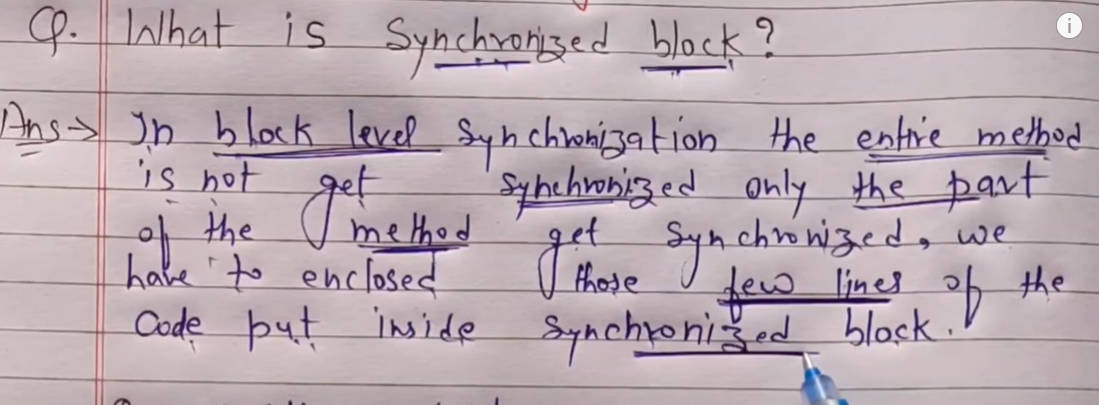 Q. What is Synchronized block?
Ans→ In block level Synchronization the entire method
is not get synchronized only the part
of the method get Synchronized, we
have to enclosed those few lines of the
Code put inside synchronized block.